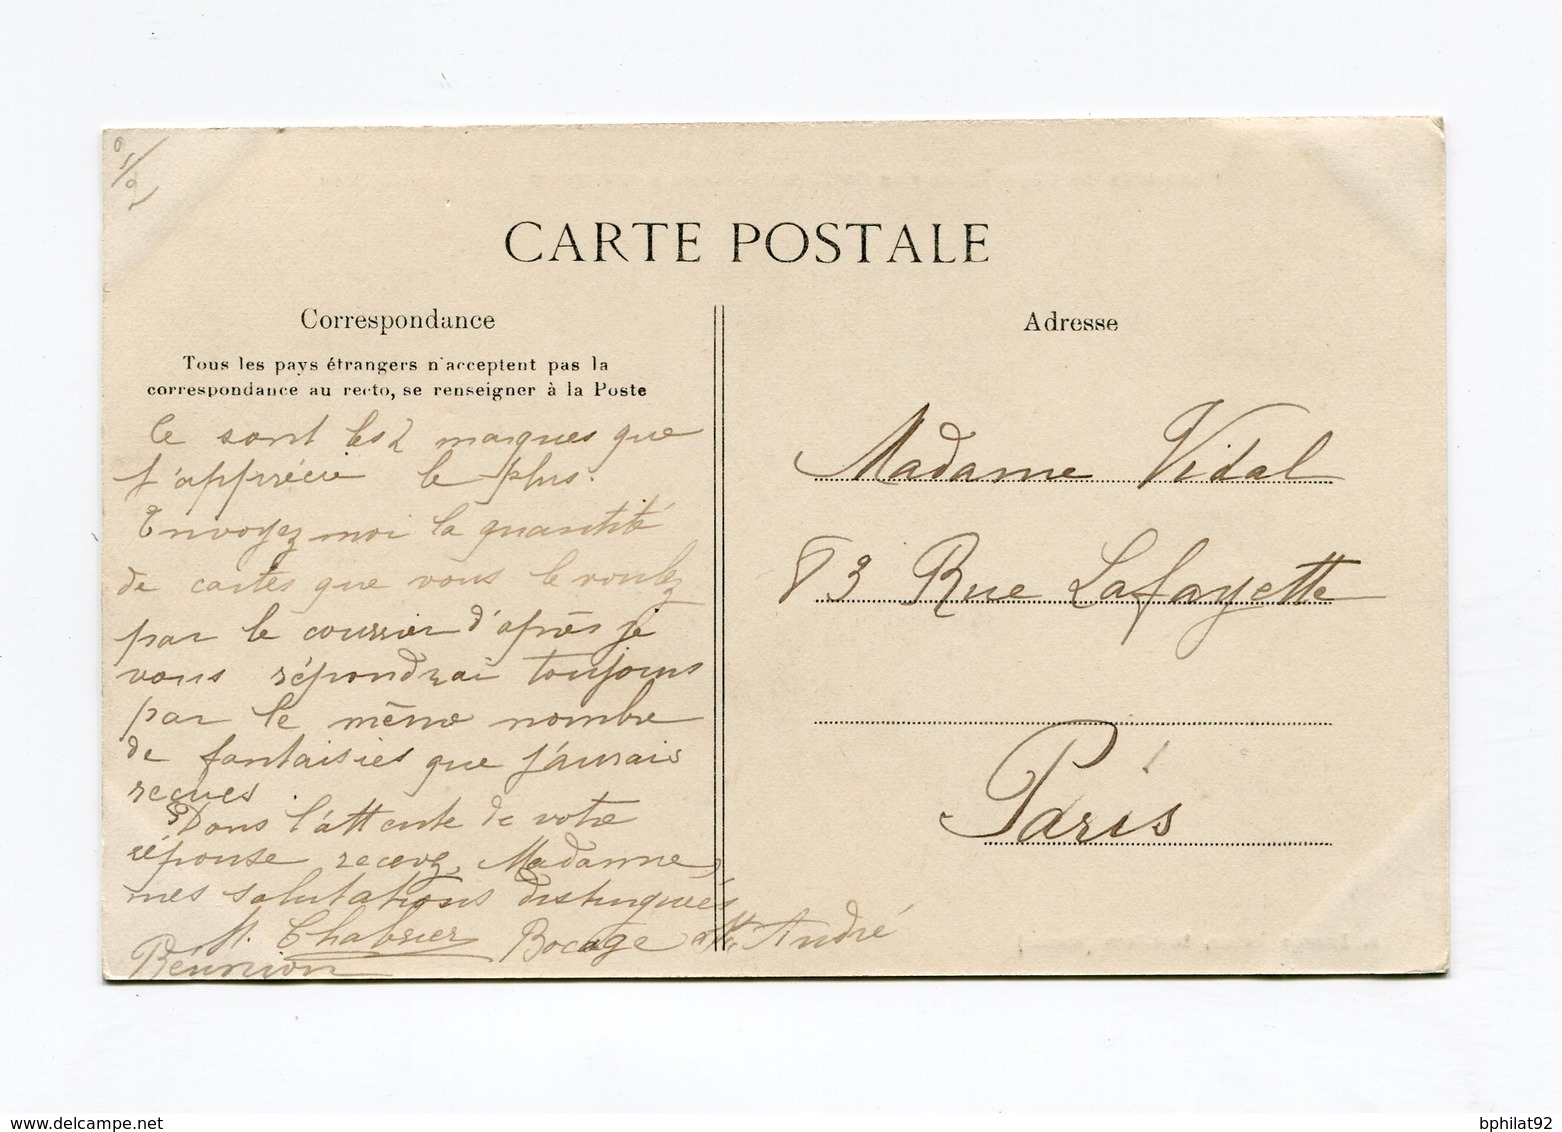 CARTE POSTALE
Correspondance
Tous les pays étrangers n'acceptent pas la
correspondance au recto, se renseigner à la Poste
Ce sont les 2 marques que
j'apprécie le plus.
Envoyez moi la quantité
de cartes que vous le voulez
par le courrier d'après je
vous répondrai toujours
par le même nombre
de fantaisies que j'aurais
reçues.
Dans l'attente de votre
réponse recevez, Madame,
mes salutations distinguées
H. Chabrier Bocage St André
Réunion
Adresse
Madame Vidal
83 Rue Lafayette
Paris
www.delcampe.net
bphilat92